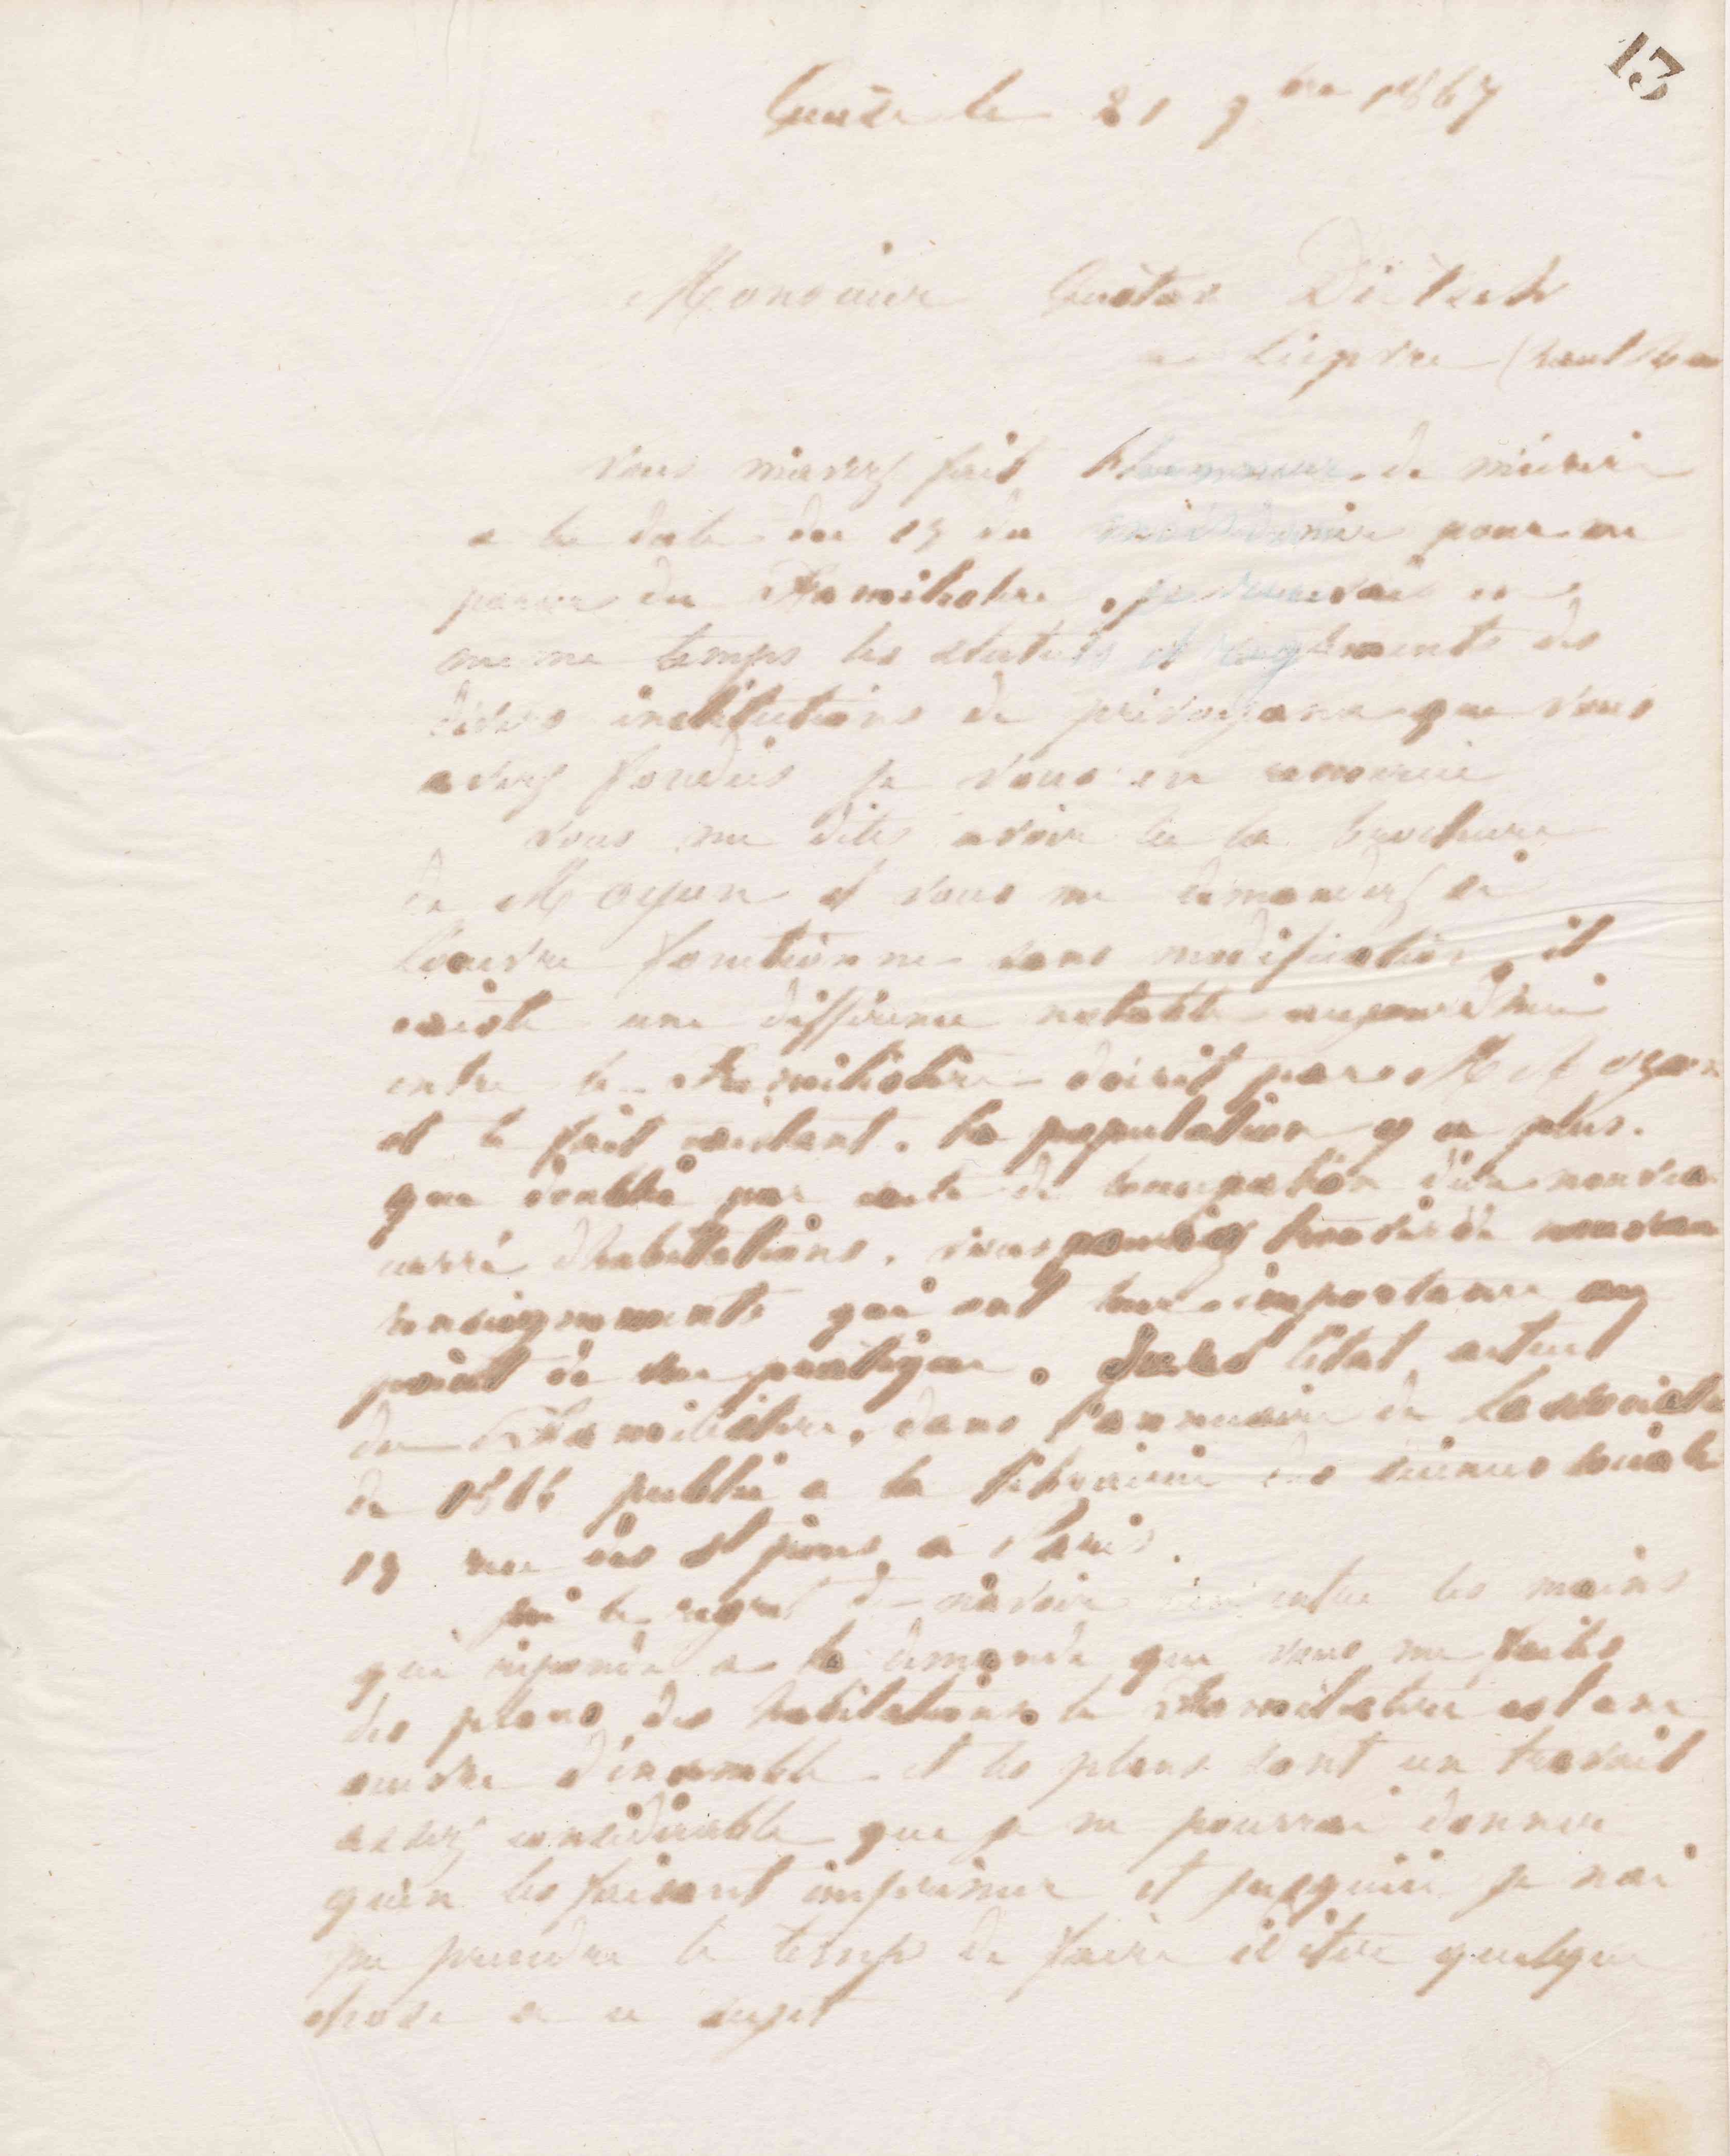 13
Guise le 21 9bre 1867
Monsieur Gustave Dietsch
a Liepvre (haut Rhin
Vous m'avez fait l'honneur de m'écrire
a la date du 13 du pour me
parler du Familistere, je recevais en
meme temps les statuts et reglements des
divers institutions de prévoyance que vous
avez fondées je vous en remercie
vous me dites avoir lu la brochure
de M Oyon et vous me demandez si
l'oeuvre fonctionne sans modification, il
existe une différence notable aujourd'hui
entre le Familistere décrit par M A Oyon
et le fait existant. la population y a plus
que doublé par suite de l'occupation d'un nouveau
carré d'habitations. vous pourriez trouver de nouveaux
renseignements qui ont leur importance au
point de vue pratique. sur l'état actuel
du Familistere, dans l'annuaire de l'association
de 1866 publié a la librairie des sciences sociales
13 rue des St pères a Paris.
j'ai le regret de n'avoir rien entre les mains
qui réponde a la demande que vous me faites
des plans des habitations. le Familistere est une
oeuvre d'ensemble et les plans sont un travail
assez considérable que je ne pourrai donner
qu'en les faisant imprimer et jusqu'ici je n'ai
pu prendre le temps de faire éditer quelque
chose a ce sujet